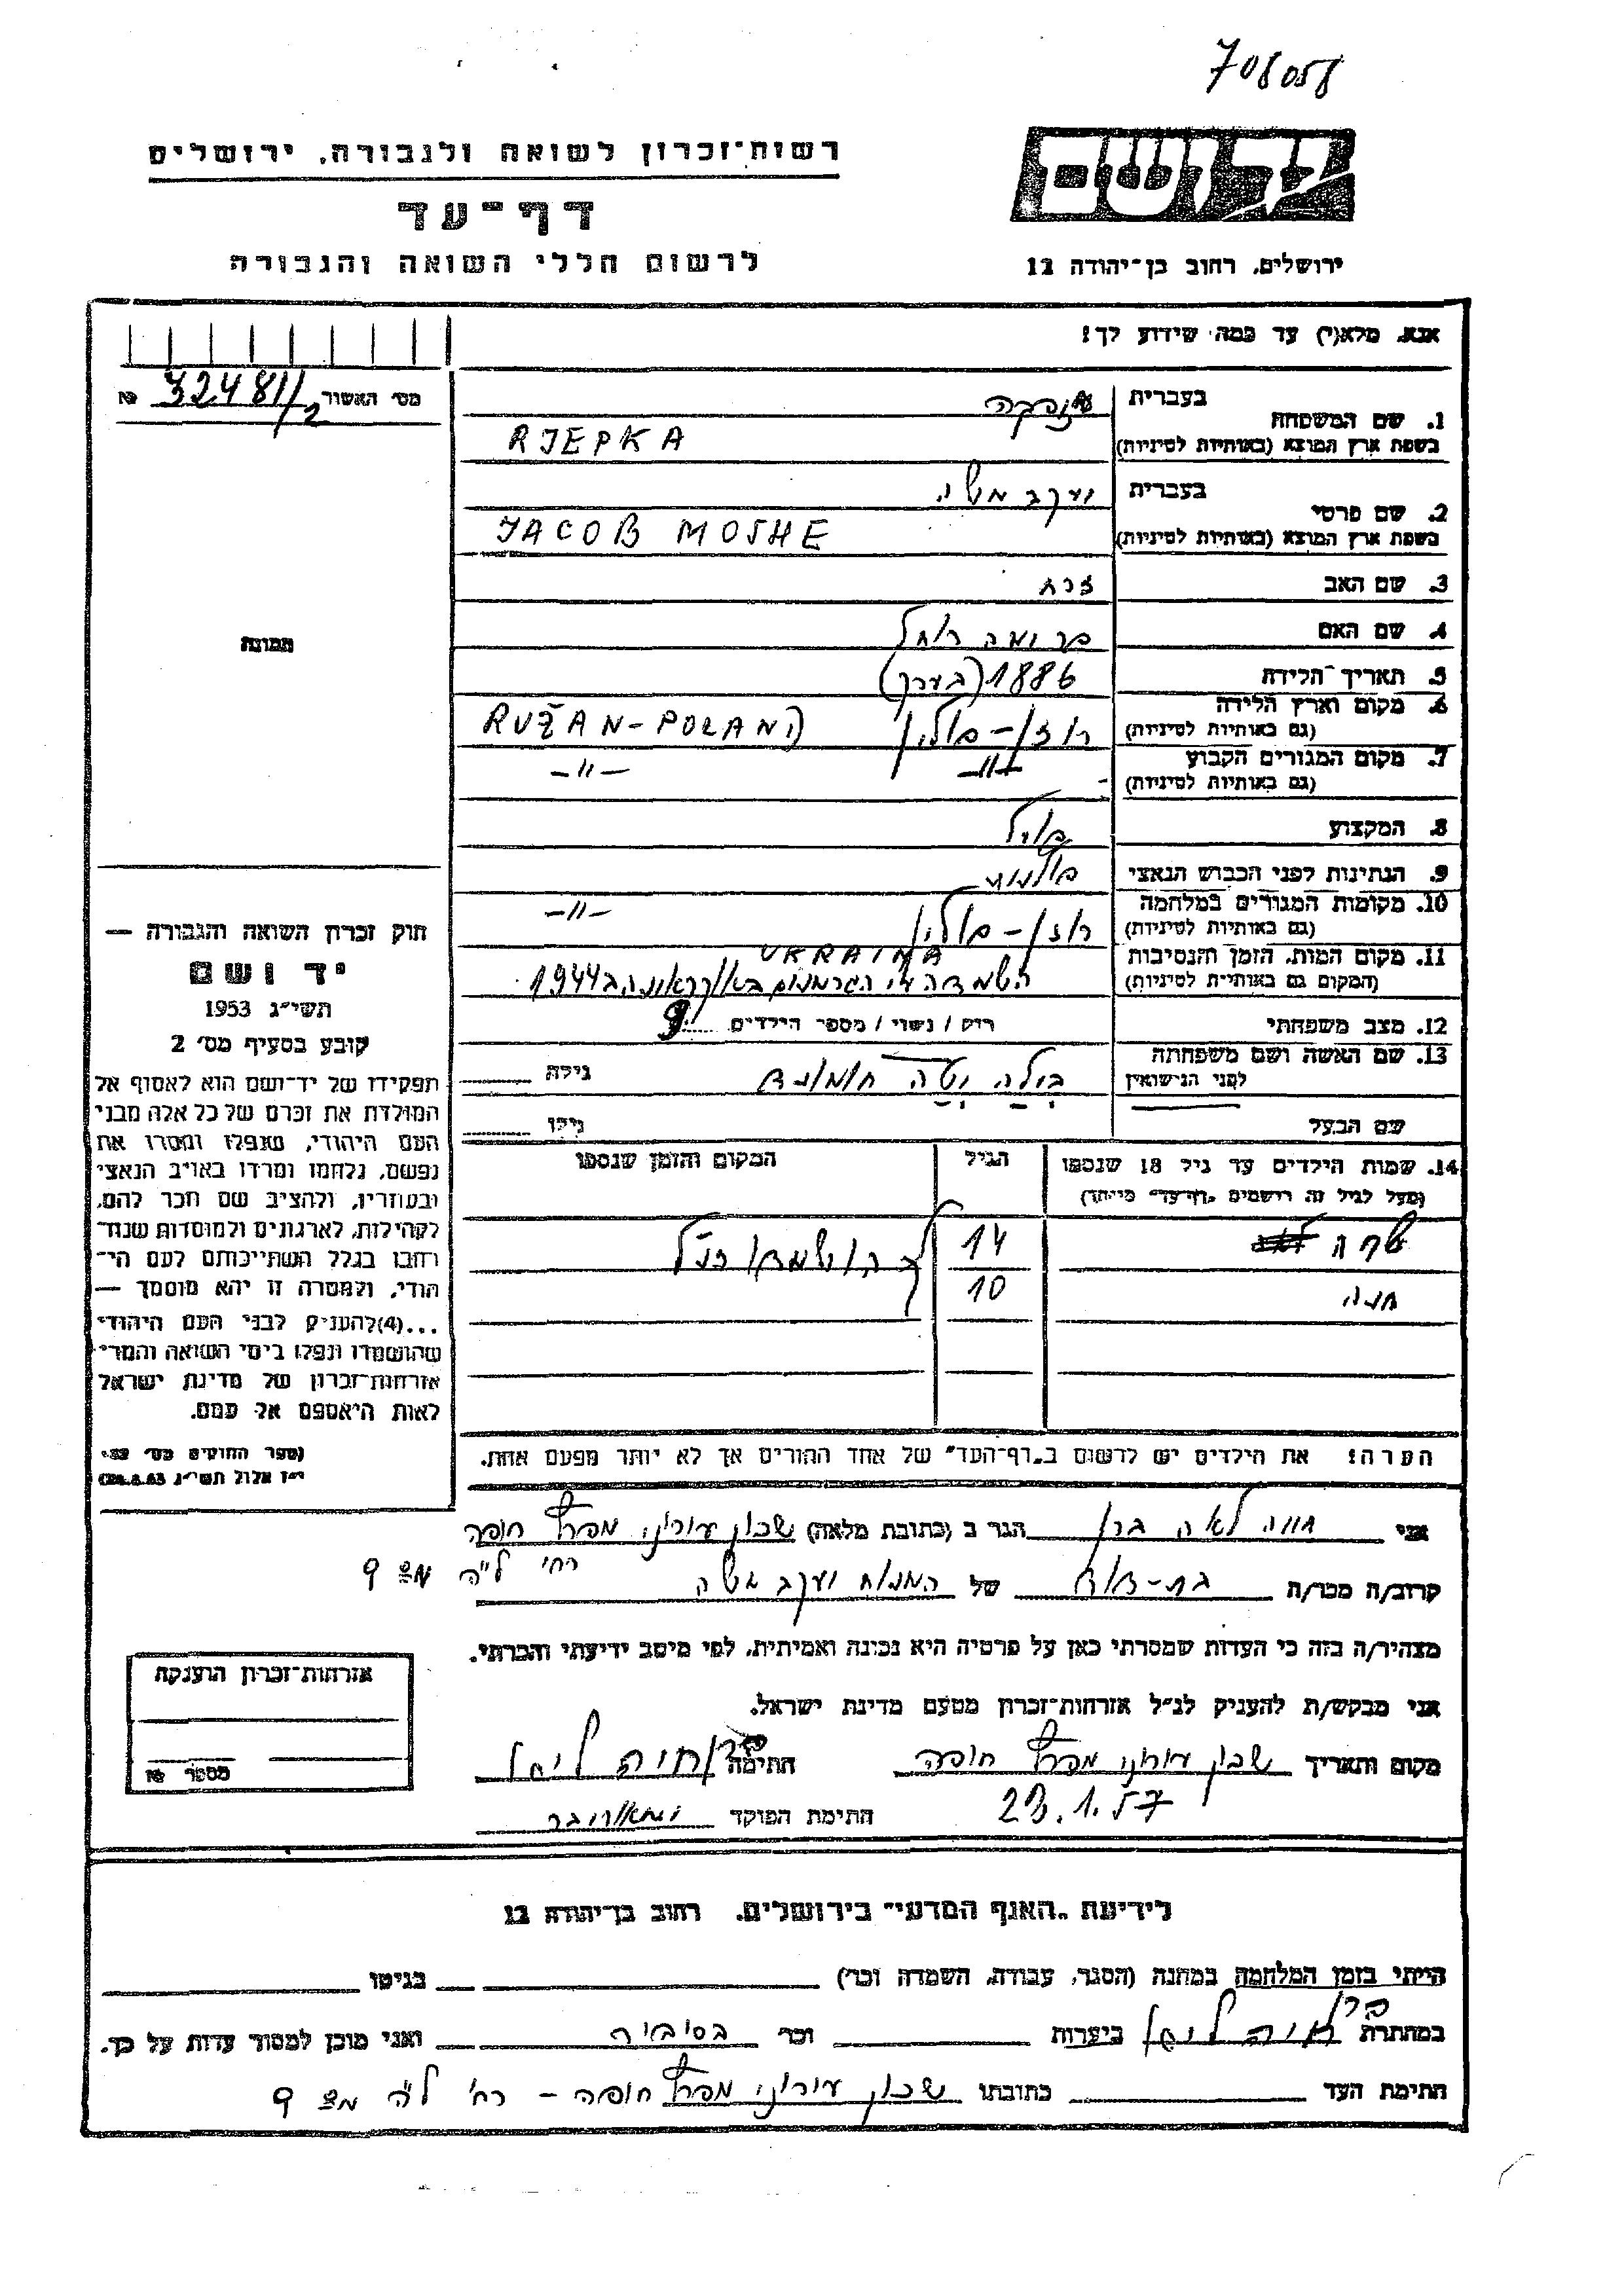 708058
רשות־זכרון לשואה ולגבורה. ירושלים
יד ושם
דף־עד
לרשום חללי השואה והגבורה
ירושלים, רחוב בן־יהודה 12
אנא, מלא(י) עד כמה שידוע לך!
מס׳ האשור 32481/2 №
1. שם המשפחה
בעברית
בשפת ארץ המוצא (באותיות לטיניות) RJEPKA
2. שם פרטי
בעברית יעקב משה
בשפת ארץ המוצא (באותיות לטיניות) JACOB MOSHE
3. שם האב זרח
4. שם האם פרומה רחל
5. תאריך־הלידה 1886 (בערך)
6. מקום וארץ הלידה
(גם באותיות לטיניות) רוזן – פולין RUŽAN – POLAND
7. מקום המגורים הקבוע –״– –״–
(גם באותיות לטיניות)
8. המקצוע
9. הנתינות לפני הכבוש הנאצי פולנית
10. מקומות המגורים במלחמה –״–
(גם באותיות לטיניות) רוזן – פולין
11. מקום המות, הזמן והנסיבות UKRAINA
(המקום גם באותיות לטיניות) השמדה ע״י הגרמנים באוקראינה ב 1944
12. מצב משפחתי רוק / נשוי / מספר הילדים 9
13. שם האשה ושם משפחתה
לפני הנישואין בילה יטה גילה
שם הבעל גילו
14. שמות הילדים עד גיל 18 שנספו הגיל המקום והזמן שנספו
(מעל לגיל זה רושמים „דף־עד״ מיוחד)
שרה 14 הושמדו כנ״ל
חנה 10
הערה! את הילדים יש לרשום ב„דף־העד״ של אחד ההורים אך לא יותר מפעם אחת.
תמונה
חוק זכרון השואה והגבורה —
יד ושם
תשי״ג 1953
קובע בסעיף מס׳ 2
תפקידו של יד־ושם הוא לאסוף אל
המולדת את זכרם של כל אלה מבני
העם היהודי, שנפלו ומסרו את
נפשם, נלחמו ומרדו באויב הנאצי
ובעוזריו, ולהציב שם וזכר להם,
לקהילות, לארגונים ולמוסדות שנח־
רבו בגלל השתייכותם לעם הי־
הודי, ולמטרה זו יהא מוסמך —
...(4) להעניק לבני העם היהודי
שהושמדו ונפלו בימי השואה והמרי
אזרחות־זכרון של מדינת ישראל
לאות היאספם אל עמם.
(ספר החוקים מס׳
י״ז אלול תשי״ג
אני חיה לאה ברן הגר ב (כתובת מלאה) שכון עירוני מפרץ חיפה
רח׳ ל״ה 9
קרוב/ה מכר/ה בת-דוד של המנוח יעקב משה
מצהיר/ה בזה כי העדות שמסרתי כאן על פרטיה היא נכונה ואמיתית, לפי מיטב ידיעתי והכרתי.
אני מבקש/ת להעניק לנ״ל אזרחות־זכרון מטעם מדינת ישראל.
מקום ותאריך שכון עירוני מפרץ חיפה חתימה
23.1.57
חתימת הפוקד
אזרחות־זכרון הוענקה
מספר №
לידיעת „האגף המדעי״ בירושלים, רחוב בן־יהודה 12
הייתי בזמן המלחמה במחנה (הסגר, עבודה, השמדה וכו׳) בגיטו
במחתרת ביערות וכו׳ בסיביר ואני מוכן למסור עדות על כך.
חתימת העד כתובתו שכון עירוני מפרץ חיפה – רח׳ ל״ה 9